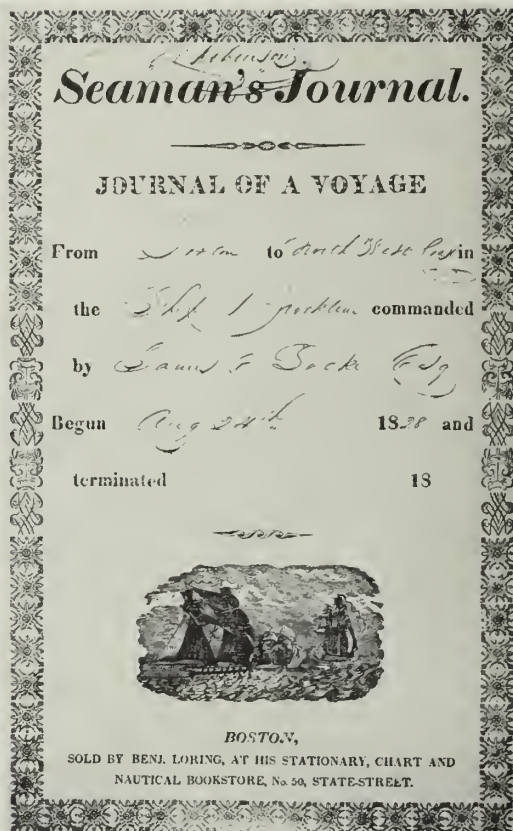 Seaman's Journal.
JOURNAL OF A VOYAGE
From Boston to North West in
the Ship Brookline commanded
by Esq
Begun Aug 18 and
terminated 18
BOSTON,
SOLD BY BENJ. LORING, AT HIS STATIONARY, CHART AND
NAUTICAL BOOKSTORE, No. 50, STATE-STREET.